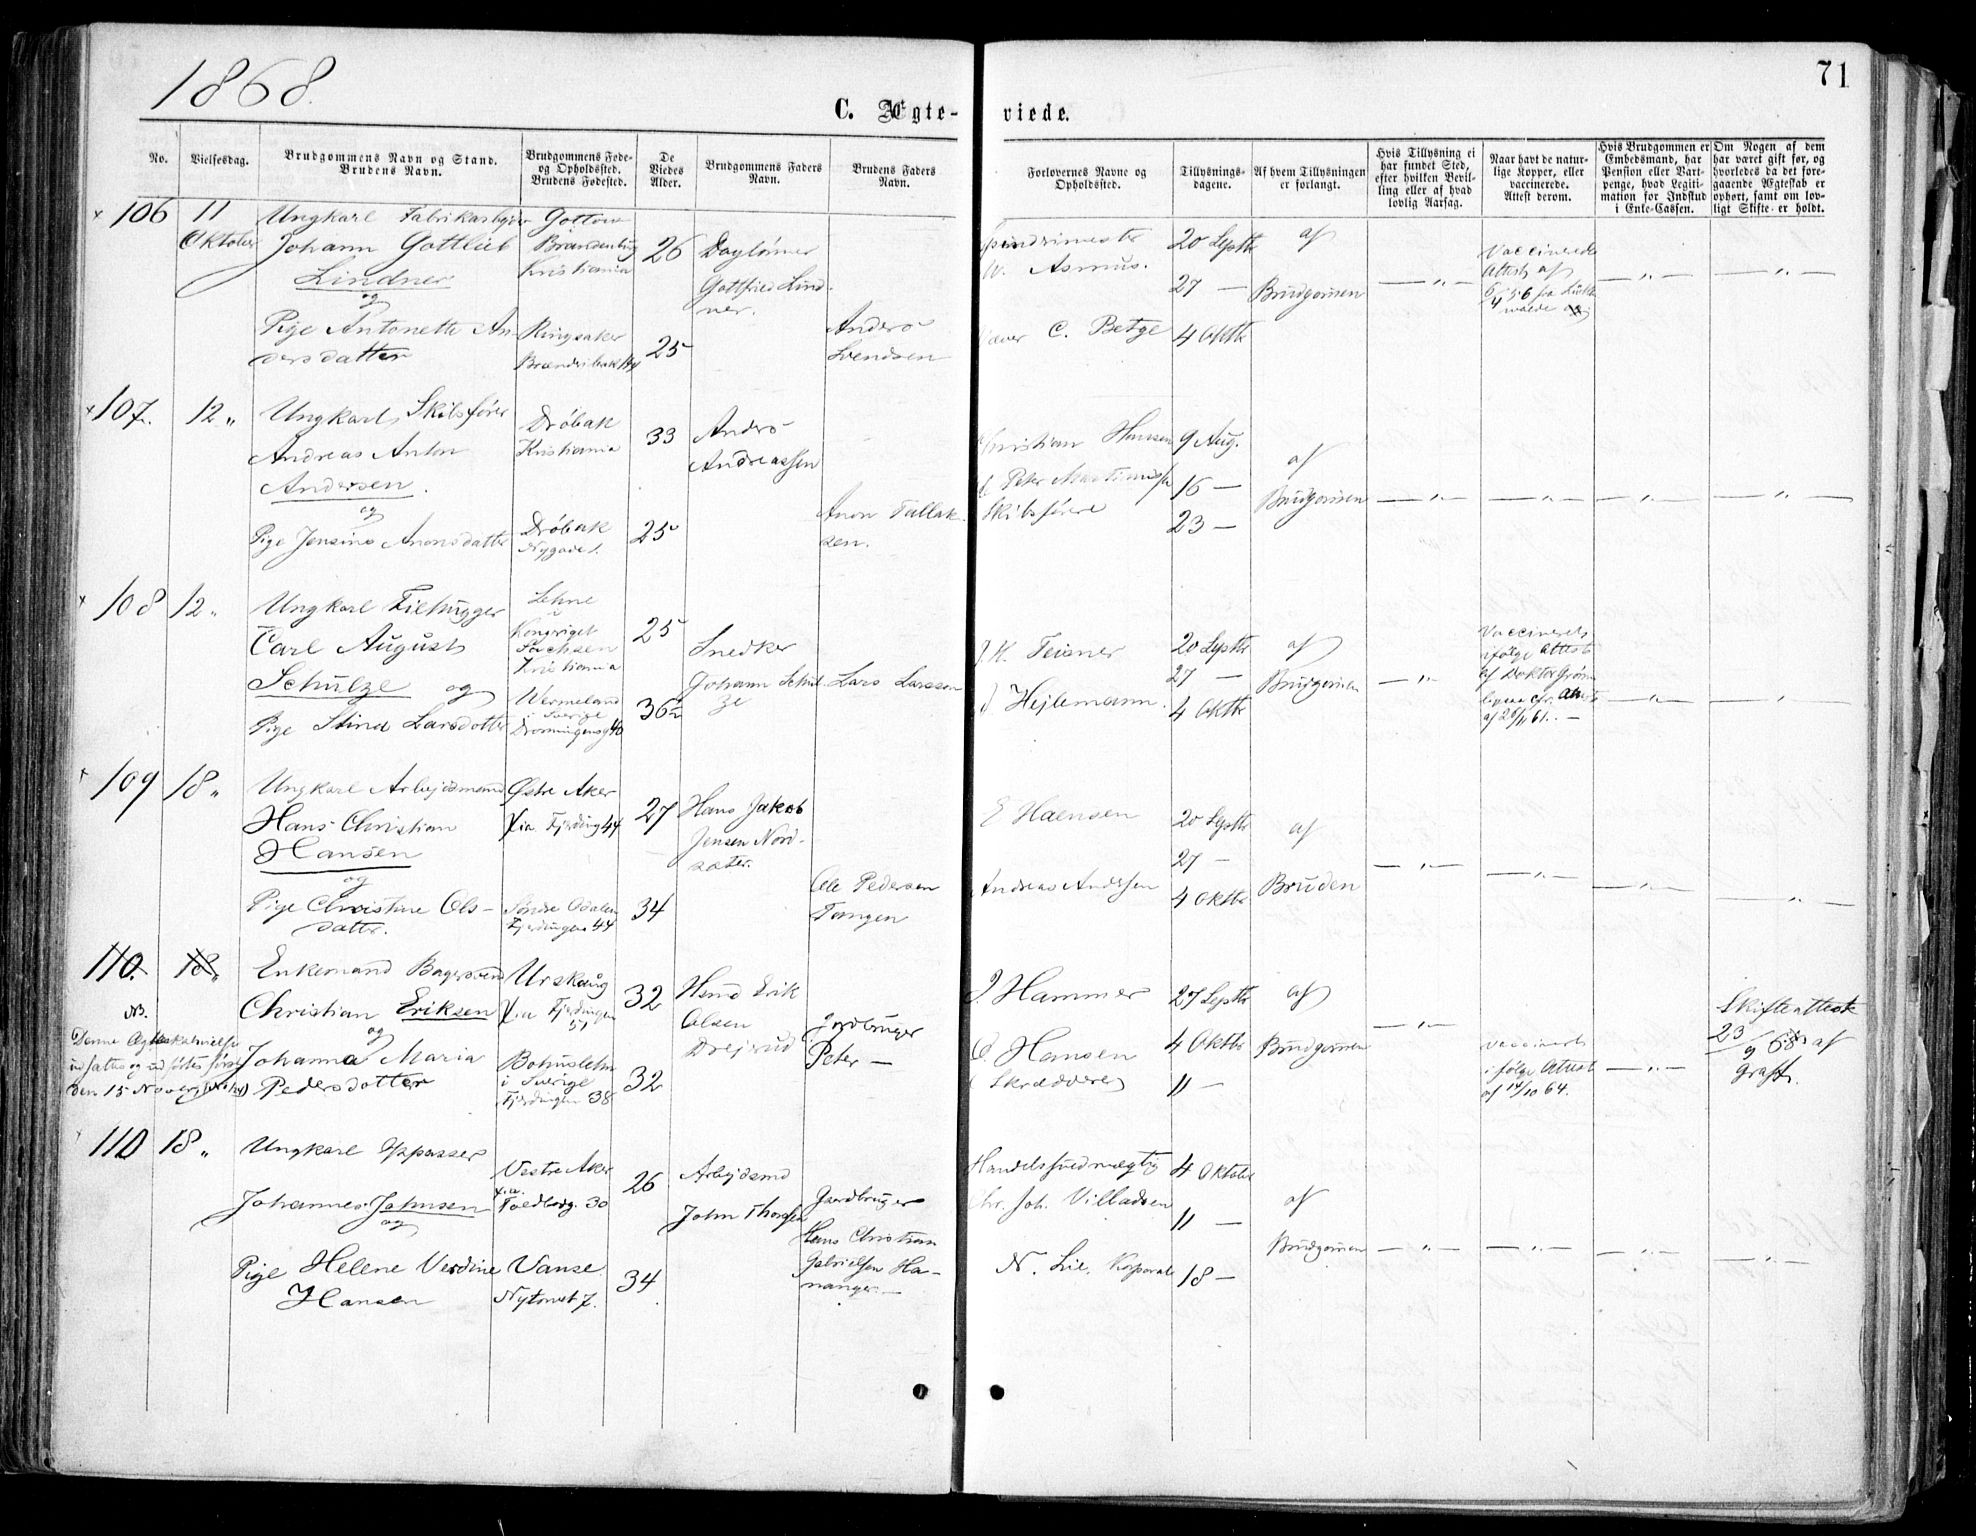 1868.
71
C. Ægte-
viede.
No.
Vielsesdag.
Brudgommens Navn og Stand.
Brudens Navn.
Brudgommens Føde-
og Opholdssted.
Brudens Fødested.
De
Viedes
Alder.
Brudgommens Faders
Navn.
Brudens Faders
Navn.
Forlovernes Navne og
Opholdssted.
Tillysnings-
dagene.
Af hvem Tillysningen
er forlangt.
Hvis Tillysning ei
har fundet Sted,
efter hvilken Bevil-
ling eller af hvad
lovlig Aarsag.
Naar havt de natur-
lige Kopper, eller
vaccinerede.
Attest derom.
Hvis Brudgommen er
Embedsmand, har
Pension eller Vart-
penge, hvad Legiti-
mation for Indskud
i Enke-Cassen.
Om Nogen af dem
har været gift før, og
hvorledes da det fore-
gaaende Ægteskab er
ophørt, samt om lov-
ligt Skifte er holdt.
106
11
Oktober
Ungkarl
Johann Gottlieb
Lindner
og
Pige Antonette An-
dersdatter
Gottow
Brandenburg
Kristiania
Ringsaker
26
25
Dagløner
Gottfried Lind-
ner.
Anders
Svendsen
W. Asmus.
C. Betge
20 Septbr
27 —
4 Oktb
af
Brudgomen
— „ —
Vaccinerede
Attest af
— „ —
— „ —
107.
12 „
Ungkarl, Skibsfører
Andreas Anton
Andersen.
og
Pige Jensine Aronsdatter
Drøbak
Kristiania
Drøbak
Nygade 1.
33
25
Anders
Andreassen
Aron Tallak-
sen.
Christian Hansen
Peter
Skibsførere
9 Aug.
16 —
23 —
af
Brudgomen
— „ —
— „ —
— „ —
— „ —
108
12 „
Ungkarl Filhugger
Carl August
Schulze og
Pige Stina Larsdotter
Kongriget
Sachsen
Kristiania
Wermeland
i Sverige
Dronningensg 40
25
36½
Snedker
Johann Schul-
ze
Lars Larsson
J. K. Teisner
Hejlemann.
20 Septbr
27 —
4 Oktb
af
Brudgomen
— „ —
Vaccineret
ifølge Attest
af Doktor
— „ —
— „ —
109
18 „
Ungkarl Arbejdsmand
Hans Christian
Hansen
og
Pige Christine Ols-
datter.
Østre Aker
Xia Fjerding 44
Søndre Odalen
Fjerdingen 44
27
34
Hans Jakob
Jensen Nord-
sæter.
Ole Pedersen
Tangen
E Haensen
Andreas Andersen
20 Septbr
27 —
4 Oktb
af
Bruden
— „ —
— „ —
— „ —
— „ —
110.
18 „
NB.
Enkemand Bagersvend
Christian Eriksen
og
Johanna Maria
Pedersdotter
Denne Ægteskabsvielse
udsattes og udførtes først
den 15 Novbr
Urskoug
Xia Fjerdingen
51
Bohuslehn
i Sverige
Fjerdingen 38
32
32
Erik
Olsen
Drejrud
Jordbruger
Peter —
J Hammer
Hansen
Skræddere
27 Septbr
4 Oktb
11 —
af
Brudgomen
— „ —
vaccineret
ifølge Attest
af 14/10 64.
— „ —
Skifteattest
23/9 68 af
110
18 „
Ungkarl Oppasser
Johannes Johnsen
og
Pige Helene Verdine
Hansen
Vestre Aker
Xia.
Toldbodg. 30
Vanse
Nytorvet 7.
26
34
Arbejdsmd
John Thorsen
Jordbruger
Hans Christian
Gabrielsen Ha-
nanger.—
Handelsfuldmægtig
Chr. Joh. Villadsen
N. Lie. Korporal
4 Oktober
11 —
18 —
af
Brudgomen
— „ —
— „ —
— „ —
— „ —